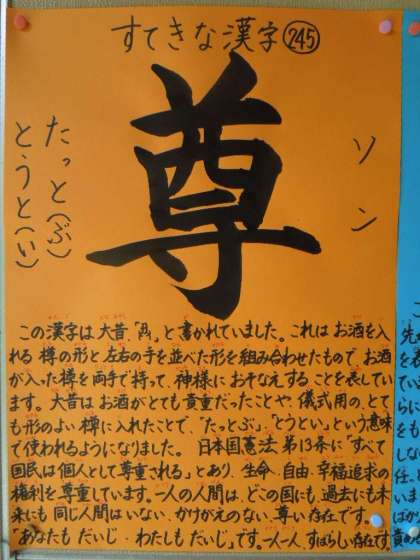 すてきな漢字 245
尊
ソン
たっと(ぶ)
とうと(い)
この漢字は大昔、「」と書かれていました。これはお酒を入
れる樽の形と左右の手を並べた形を組み合わせたもので、お酒
が入った樽を両手で持って、神様におそなえすることを表してい
ます。大昔はお酒がとても貴重だったことや、儀式用の、とて
も形のよい樽に入れたことで、「たっとぶ」、「とうとい」という意味
で使われるようになりました。日本国憲法、第13条に「すべて
国民は個人として尊重される」とあり、生命、自由、幸福追求の
権利を尊重しています。一人の人間は、どこの国にも、過去にも未
来にも同じ人間はいない、かけがえのない、尊い存在です。
「あなたもだいじ・わたしもだいじ」です。一人一人、すばらしい存在です